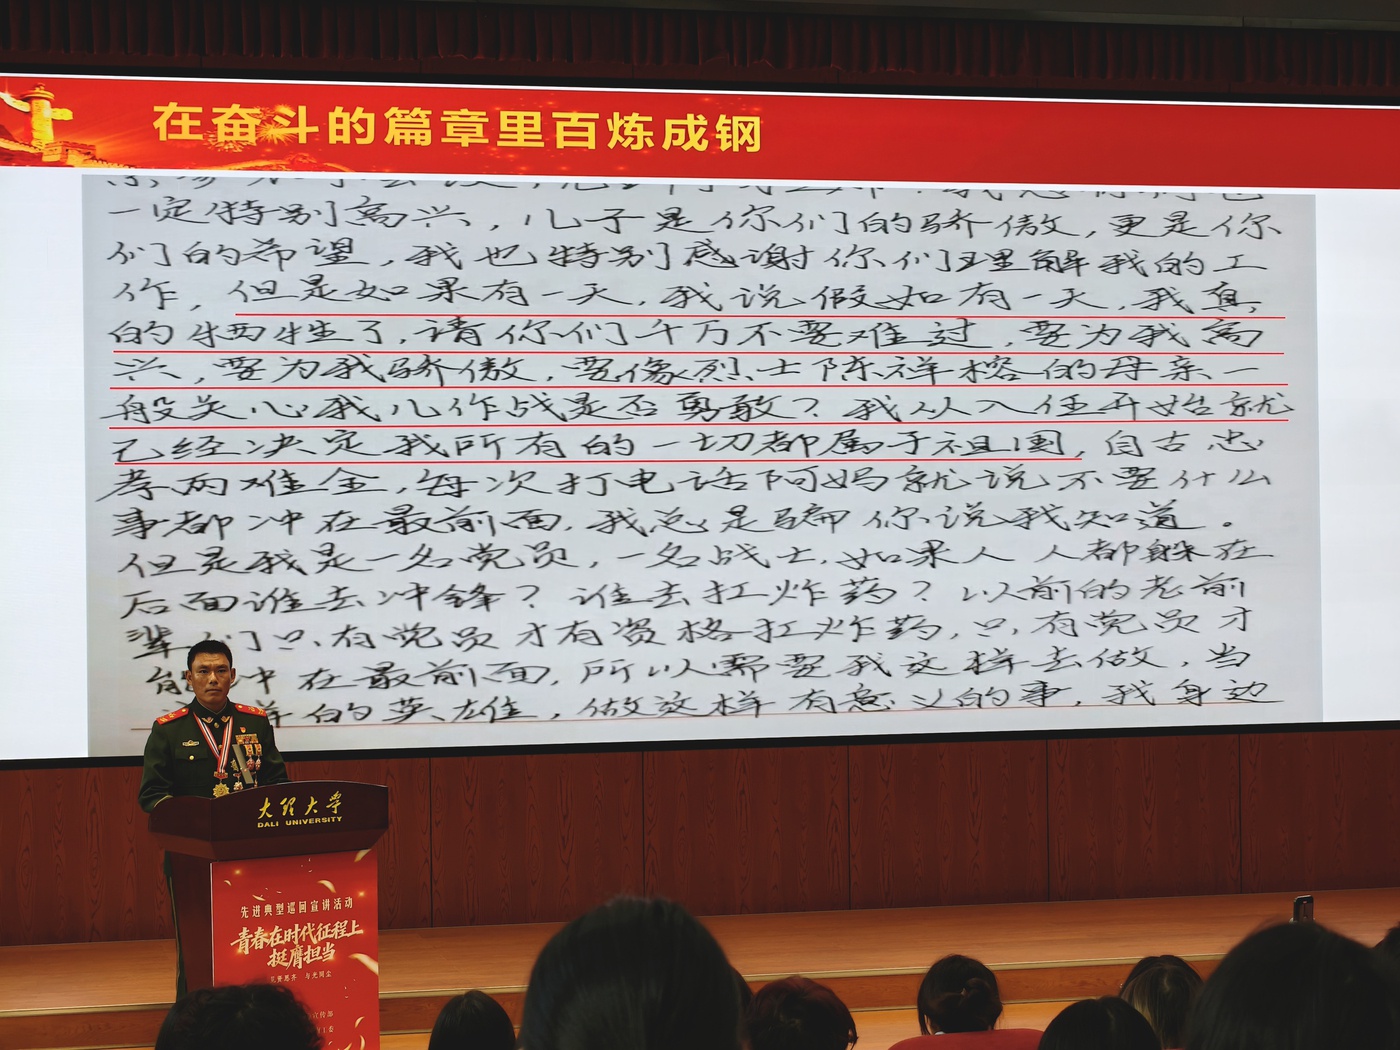 在奋斗的篇章里百炼成钢
一定特别高兴，儿子是你们的骄傲，更是你
们的希望，我也特别感谢你们理解我的工
作，但是如果有一天，我说假如有一天，我真
的牺牲了，请你们千万不要难过，要为我高
兴，要为我骄傲，要像烈士陈祥榕的母亲一
般关心我儿作战是否勇敢？我从入伍开始就
已经决定我所有的一切都属于祖国，自古忠
孝两难全，每次打电话阿妈就说不要什么
事都冲在最前面，我总是骗你说我知道。
但是我是一名党员，一名战士，如果人人都躲在
后面谁去冲锋？谁去扛炸药？以前的老前
辈们只有党员才有资格扛炸药，只有党员才
能冲在最前面，所以需要我这样去做，当
的英雄，做这样有意义的事，我身边
大理大学
DALI UNIVERSITY
先进典型巡回宣讲活动
青春在时代征程上
挺膺担当
见贤思齐 与光同尘
宣传部